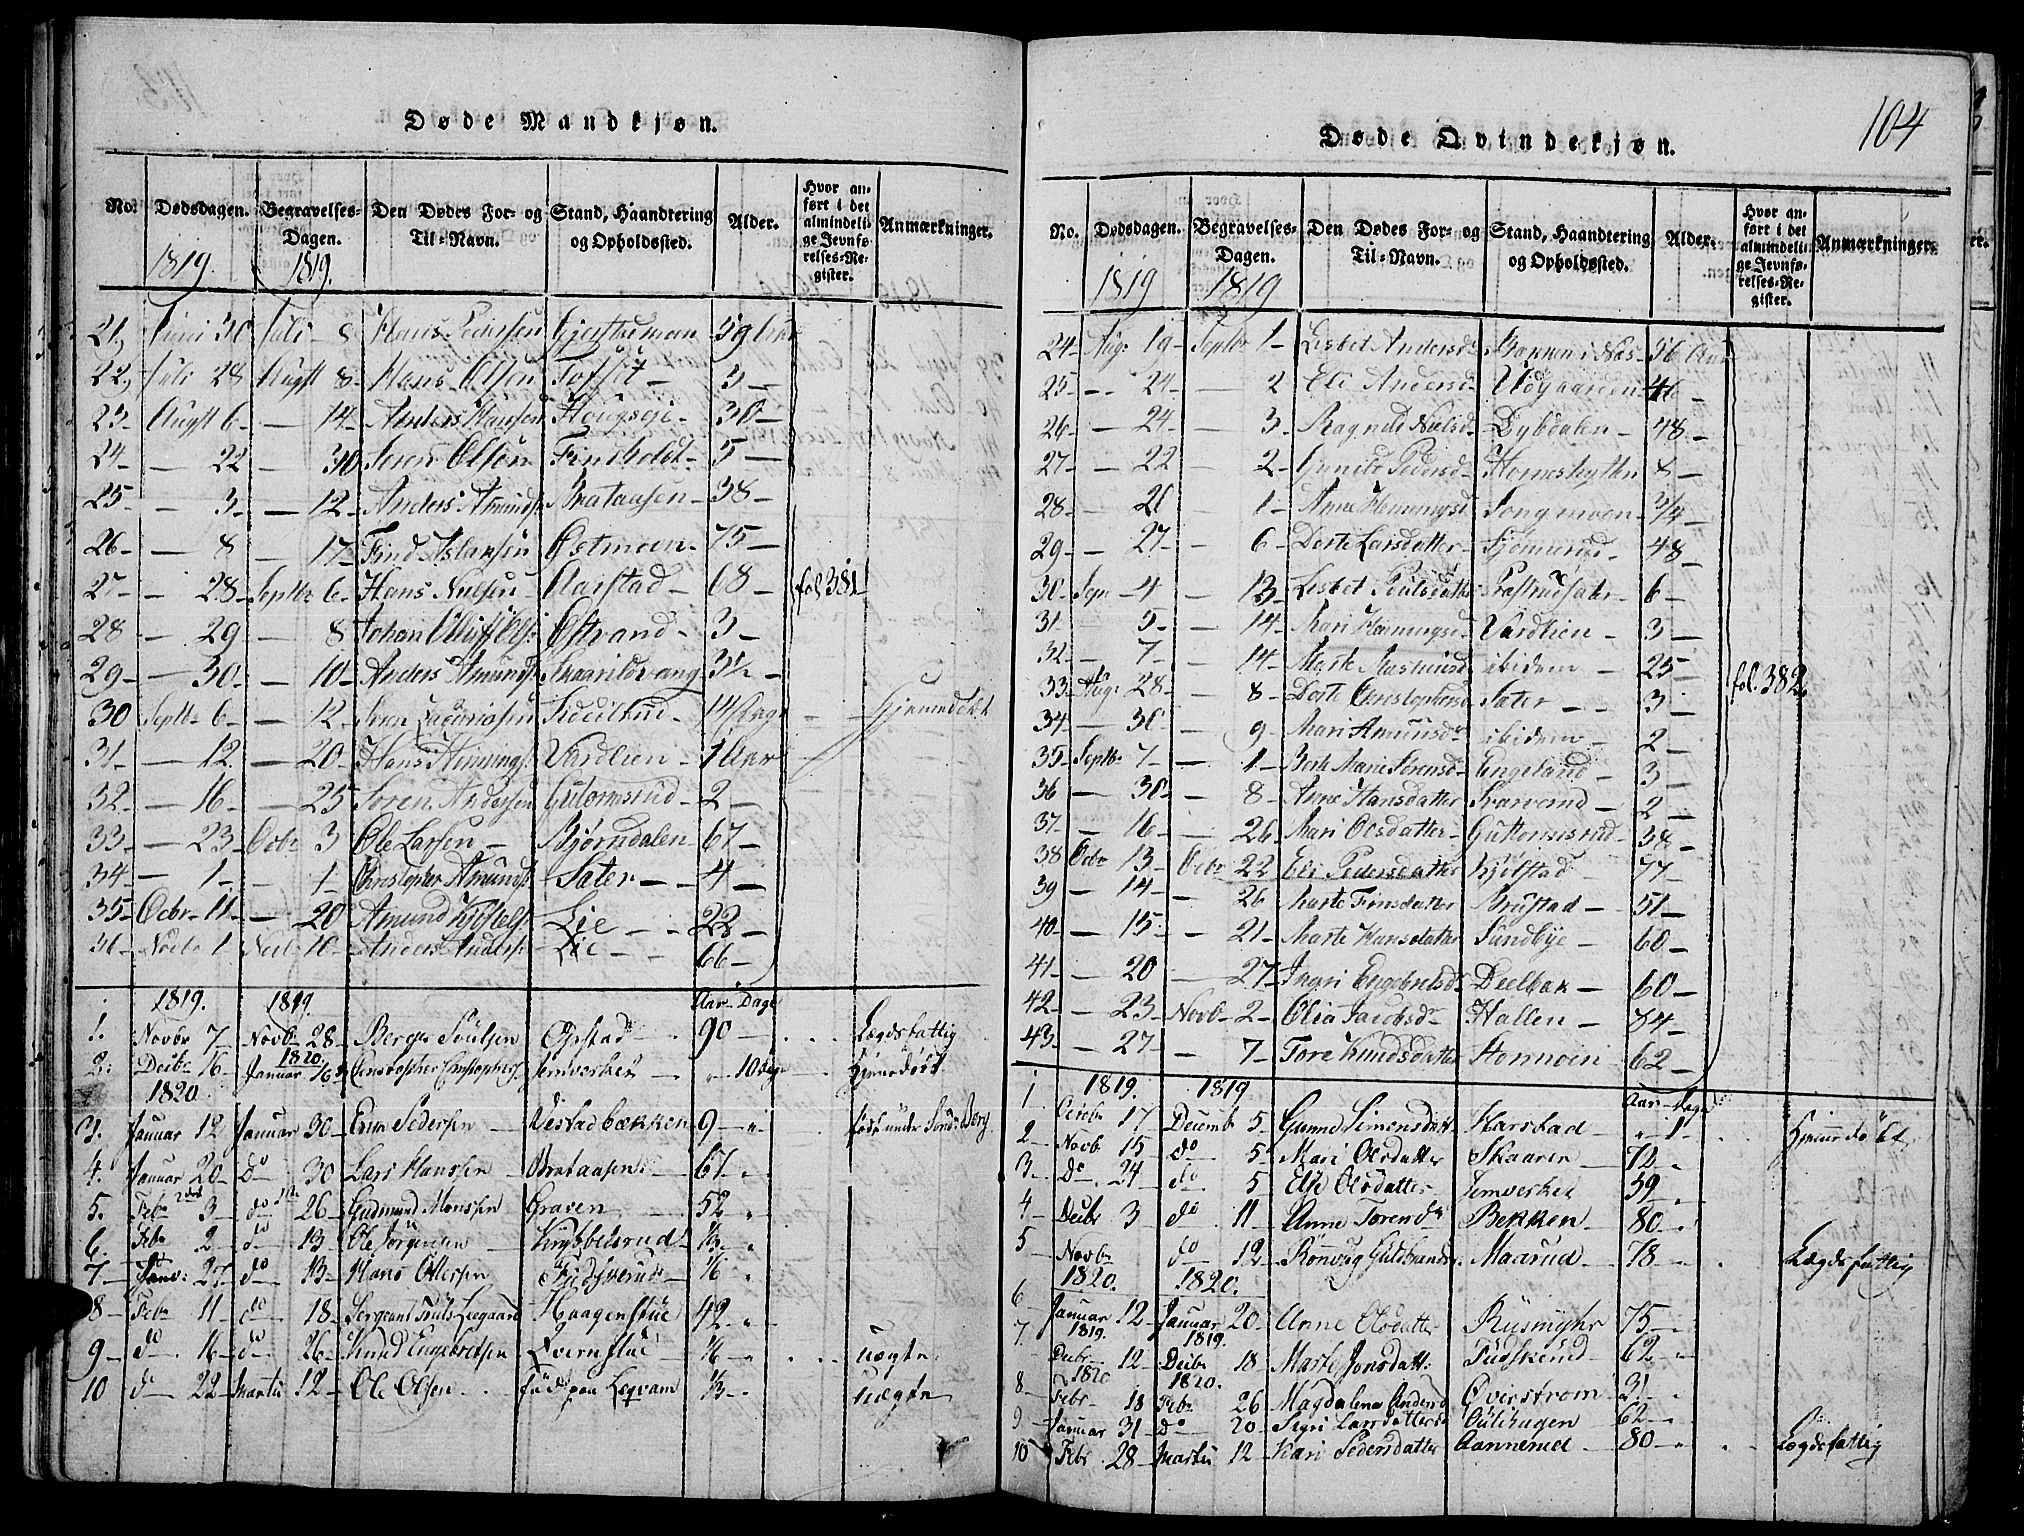 Døde Mandkjøn.
No. Dødsdagen. Begravelses-Dagen. Den Dødes For- og Til-Navn. Stand, Haandtering og Opholdssted. Alder. Hvor anført i det almindelige Jevnførelses-Register. Anmærkninger.
1819. 1819.
21, Juni 30 Juli - 8 Hans Pedersen 59 Aar
22, Juli 28 Augst 8- Hans Olsen Tofset - 3 -
23- Augst 6- - 14- Anders Hansen Hougseje- 30-
24 - 22 - 30 Søren Olsen Findholdt- 5 -
25 - 3- - 12- Anders Amunds. Brataasen- 38-
26- - 8 - 17- Find Aslaksen Østmoen- 75-
27- - 28- Septbr 6- Hans Nielsen Aarstad- 68- fol 381
28 - 29 - 8 Johan Ostrand- 3-
29- - 30- - 10- Anders Amunds. 3½-
30 Septbr 6- - 12- Søren 14 Dage - - Hjemmedøbt
31- - 12. - 20- Hans Hemings. Vardlien- 1 Aar
32- - 16- - 25 Søren Andersen Gutormsrud- 2-
33- - 23 Octbr 3 Ole Larsen - Bjørndalen- 67-
34- - 1- - 1- Christopher Amunds. Sæter - - 4-
35- Octbr- 11- - 20 Amund Lie - - 22-
36- Novbr 1 Novb- 16- Anders Anders. Lie - - 66-
1819. 1819. Aar- Dage
1. Novbr 7- Novb 28- Berger Poulsen Opstad - 90 - . . . Lægdsfattig
2. Decbr 16- 1820. Januar 16 Christopher Christophers. Jernverket - " 10 Dage Hjemmedøbt
1820
3. Januar 12 Januar 30- Even Pedersen Vestadbækken 9 - " født under Søndr Berg
4. Januar 20- Do 30 Lars Hanssen Brataasen. 67 "
5. Febr 3- do 26- Gudmund Hanssen Graven 52 "
6. Febr 2- do 13- Ole Jørgensen 1/3- "
7- Janv: 27. do 13- Hans Ottersen 1/6 "
8- Febr 11- do 18- Sergeant Pouls Leegaard Haagenstue 42- "
9- do. 16- do. 26- Knud Engebretsen Qvernstue 1/6- " . . . uægte
10 do 22- Martii 12- Ole Olsen . . født paa Leqvam 1/3- " uægte
104
Døde Qvindekjøn.
No. Dødsdagen. Begravelses-Dagen. Den Dødes For- og Til-Navn. Stand, Haandtering og Opholdssted. Alder. Hvor anført i det almindelige Jevnførelses-Register. Anmærkninger.
1819 1819
24- Aug: 19- Septbr 1- Lisbet Andersd. i Næs- 56 Aar
25- - 24- - 2 Eli Andersd. Udgaarden- 46-
26- - 24- - 3- Ragnild Nielsd. Dybdalen- 48-
27- - 22 - 2- Gunild Pedersd. 8-
28- - 21 - 1- Anne Hemmingsd. Songmoen- 3/4-
29- - 27- - 6- Dorte Larsdatter- 48-
30- Sepr 4- - 13- Lisbet Poulsdatter Præstrudsæter- 6-
31 - 5- - 14- Mari Hemingsd. Vardlien- 3-
32- - 7- - 14- Marte Rasmusd. ibidem - 25-
33- Aug: 28- - 8- Dorte Christophersd. Sæter - - 3- fol. 382
34- - 30- - 9- Mari Amunsdr ibidem - 2-
35- Septbr 7- - 1- Berte Marie Sørensd. Engeland- 3-
36 - 30- - 8- Anne Hansdatter 2-
37- - 16- - 26- Mari Olsdatter- Guttormsrud- 38-
38 Octbr 13- Octbr 22- Eli Pedersdatter Kjølstad- 77-
39 - 14- - 26 Marte Finsdatter Brustad- 51-
40- - 15- - 21- Marte Hansdatter Sundbye- 60-
41- - 20 - 27- Ingri Engebretsd. Deelbak- 60-
42- - 23- Novb- 2- Olia Jacobsd- Hallen- 84-
43- - 27- - 7- Tore Knudsdatter 62-
1819. 1819 Aar- Dage
1 Octbr 17 Decemb 5- Gunne Simensdatt. Harstad - " 1- . . Hjemmedøbt
2 Novb 15 do 5- Mari Olsdatter Skaaren - 72-
3- Do. 24 do. 5 Else Olsdatter Jernverket 59
4 Decbr 3 do 11- Anne Torensdr Bekken- 80- "
5 Novbr do 12- Rønnug Guldbrandsd. Maarud - 78- . . Lægdsfattig
1820. 1820.
6 Januar 12- Januar 20- Anne Olsdatter 75-
7 1819. Decbr 12- 1819 Decbr 18 Marte Jonsdatt. 62-
8 1820 Febr- 18 1820. Febr 26 Magdalena Andersd. Qverstrøm 31-
9 Januar 31- Do- 20- Siri Larsdatter 62-
10 Febr 28- Martii 12- Kari Pedersdatter Aannerud - 80- " . . Lægdsfattig